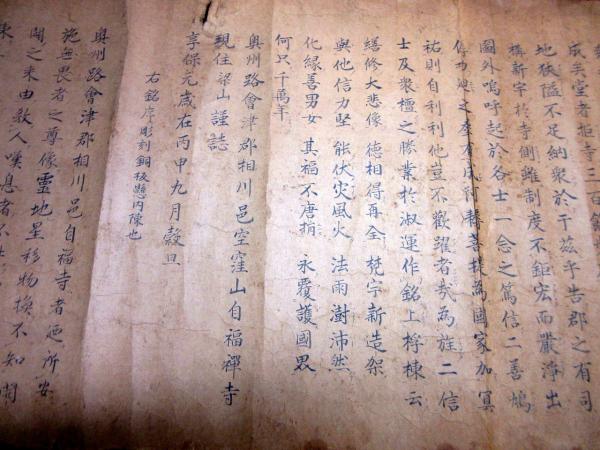 成矣堂者拒寺三百餘
地狹隘不足納衆於于茲乎告郡之有司
構新宇於寺側雖制度不鉅宏而嚴淨出
圖外嗚呼起於各士一念之篤信二善鳩
為國家加冥
祐則自利利他豈不歡躍者哉為旌二信
士及衆檀之勝業於淑運作銘上梓棟云
繕修大悲像 德相得再全 梵宇新造架
與他信力堅 能伏災風火 法雨澍沛然
化緣善男女 其福不唐捐 永覆護國界
何只千萬年
奥州路會津郡相川邑空窪山自福禪寺
現住梁山 謹誌
享保元歳在丙申九月穀旦
右銘序彫刻銅板懸内陳也
奥州路會津郡相川邑自福寺者迺所安
施無畏者之尊像靈地星移物換不知開
闢之來由教人嘆息者